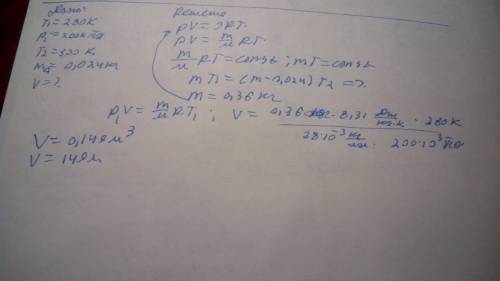 Дано:
T₁ = 280 К
p₁ = 200 кПа
T₂ = 300 К
m₂ = 0,024 кг
V = ?
Решение
pV = νRT.
pV = m/μ RT.
m/μ RT = const; mT = const
mT₁ = (m - 0,024) T₂ =>
m = 0,36 кг
p₁V = m/μ RT₁; V = 0,36 кг · 8,31 Дж/кг·К · 280 К / 28·10⁻³ кг/ · 200·10³ Па
V = 0,149 м³
V = 149 л